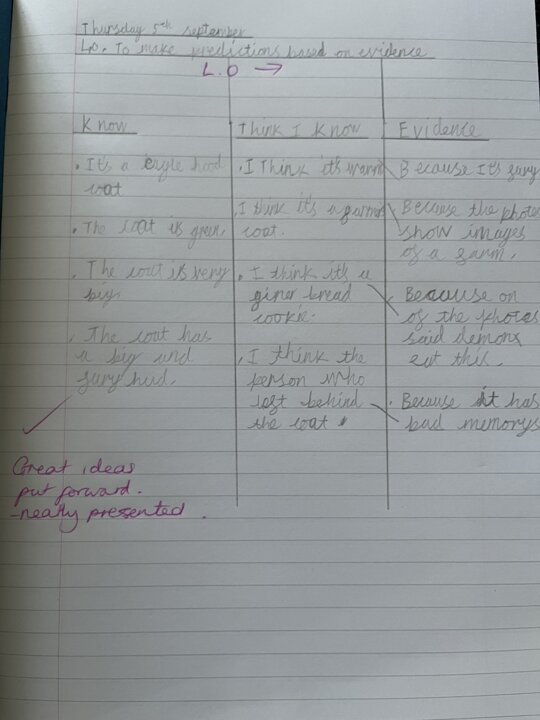 Thursday 5th september
L.O. To make predictions based on evidence
L.O →
Know
. It's a hood
coat
. The coat is green.
. The coat is very
big.
. The coat has
a big and
fury hud.
Think I know
. I Think it's warm
I think it's a
coat.
. I think it's a
giner bread
cookie.
. I think the
person who
left behind
the coat .
Evidence
Because It's fury
Because the photos
show images
of a
Because on
of the photos
said demonx
eat this.
. Because it has
bad memorys
Great ideas
put forward.
-neatly presented.